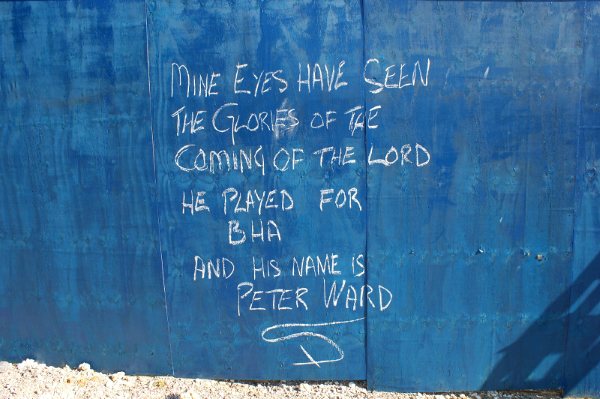 MINE EYES HAVE SEEN
THE GLORIES OF THE
COMING OF THE LORD
HE PLAYED FOR
BHA
AND HIS NAME IS
PETER WARD